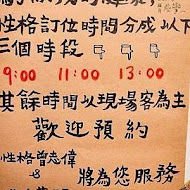 性格訂位時間分成以下
三個時段
9:00 11:00 13:00
其餘時間以現場客為主
歡迎預約
性格曾志偉
將為您服務